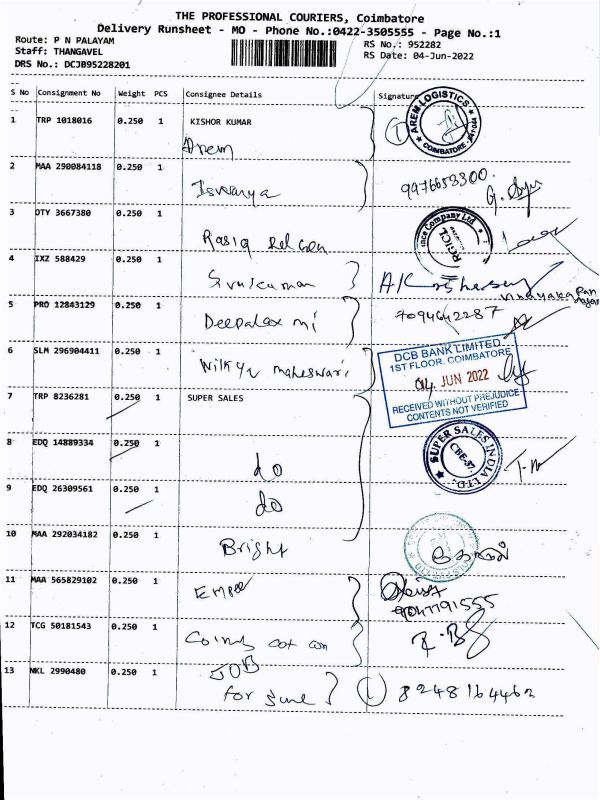 THE PROFESSIONAL COURIERS, Coimbatore
Delivery Runsheet - MO - Phone No.:0422-3505555 - Page No.:1
Route: P N PALAYAM
RS No.: 952282
Staff: THANGAVEL
RS Date: 04-Jun-2022
DRS No.: DCJB95228201
S No Consignment No Weight PCS Consignee Details Signature
1 TRP 1018016 0.250 1 KISHOR KUMAR
Arem
AREM LOGISTICS
COIMBATORE
2 MAA 290084118 0.250 1
Iswarya
9976653300
3 OTY 3667380 0.250 1
nce Company Ltd
RGICL
4 IXZ 588429 0.250 1
Sivakumar
5 PRO 12843129 0.250 1
Deepalaxmi
7094642287
6 SLM 296904411 0.250 1
maheswari
DCB BANK LIMITED
1ST FLOOR, COIMBATORE
04 JUN 2022
RECEIVED WITHOUT PREJUDICE
CONTENTS NOT VERIFIED
7 TRP 8236281 0.250 1 SUPER SALES
SUPER SALES INDIA LTD.
CBE-37.
8 EDQ 14889334 0.250 1
do
9 EDQ 26309561 0.250 1
do
10 MAA 292034182 0.250 1
Bright
11 MAA 565829102 0.250 1
9047791555
12 TCG 50181543 0.250 1
13 NKL 2990480 0.250 1
JOB
for June
8248164462